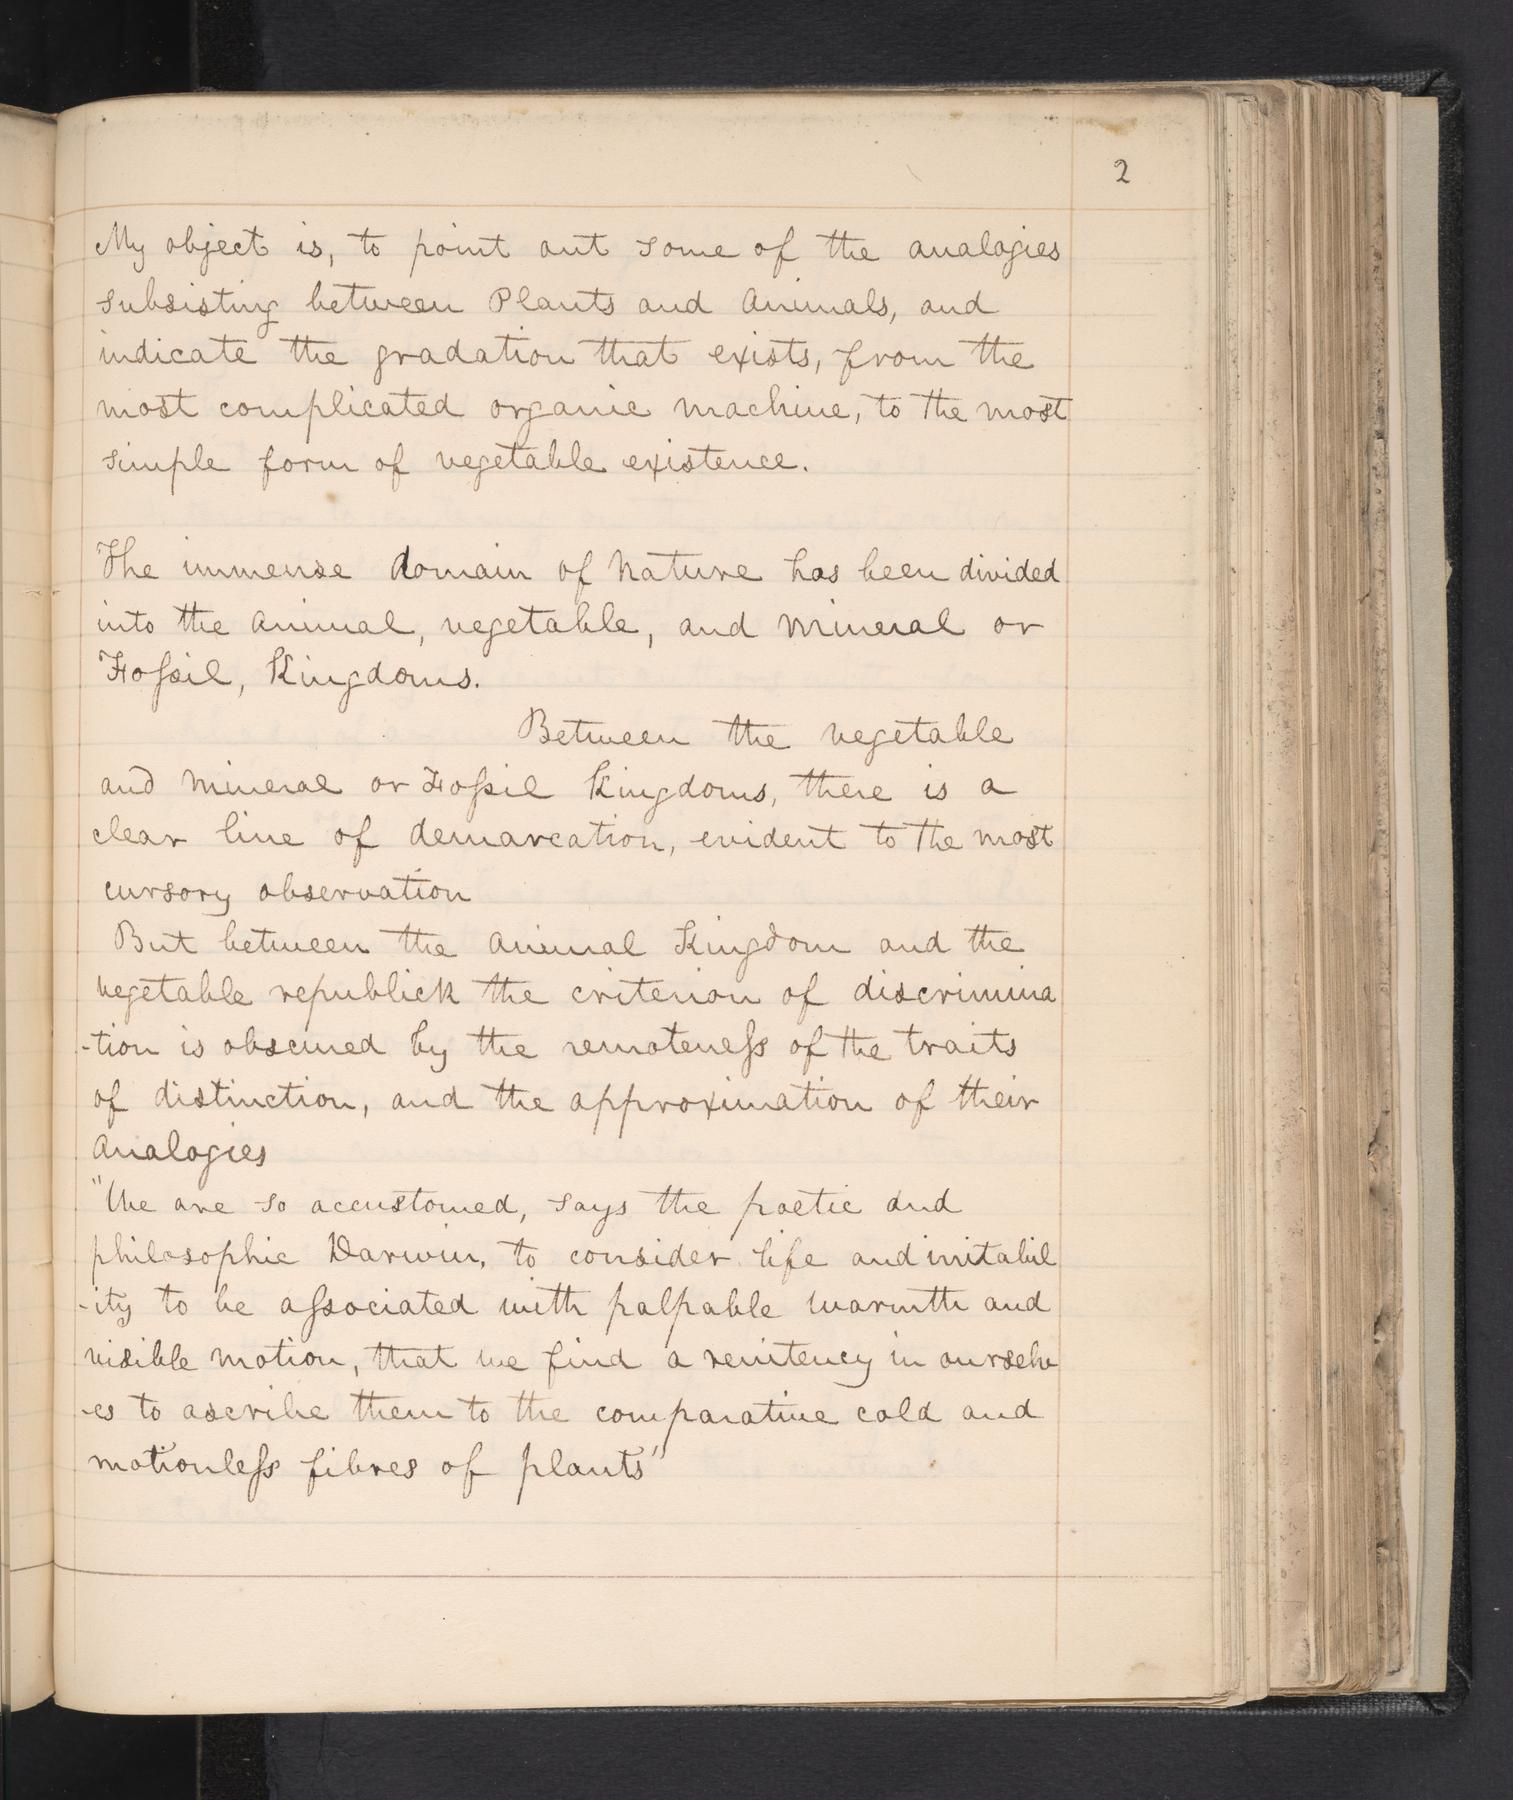 2
My object is, to point out some of the analogies
subsisting between Plants and Animals, and
indicate the gradation that exists, from the
most complicated organic machine, to the most
simple form of vegetable existence.
The immense domain of Nature has been divided
into the Animal, vegetable, and Mineral or
Foſsil, Kingdoms.
Between the vegetable
and Mineral or Foſsil Kingdoms, there is a
clear line of demarcation, evident to the most
cursory observation
But between the Animal Kingdom and the
vegetable republick the criterion of discrimina
-tion is obscured by the remoteneſs of the traits
of distinction, and the approximation of their
Analogies
"We are so accustomed, says the poetic and
philosophic Darwin, to consider life and irritabil
-ity to be aſsociated with palpable warmth and
visible motion, that we find a renitency in ourselv
-es to ascribe them to the comparative cold and
motionleſs fibres of plants"